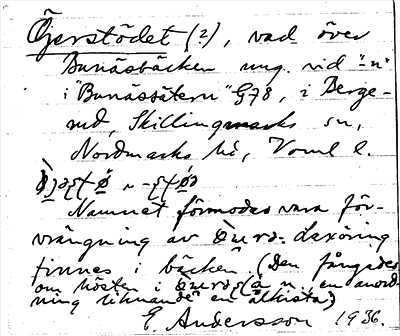 Öjerstödet (?), vad över
Bunäsbäcken ung. vid "-n"
i "Bunäsätern" G78, i Berge-
rud, Skillingmarks sn,
Nordmarks hd, Vrml l.
Namnet förmodas vara för-
vrängning av Laxöring
finnes i bäcken. (Den fångades
om hösten i en anord-
ning liknande en ålkista)
E. Andersson 1936.